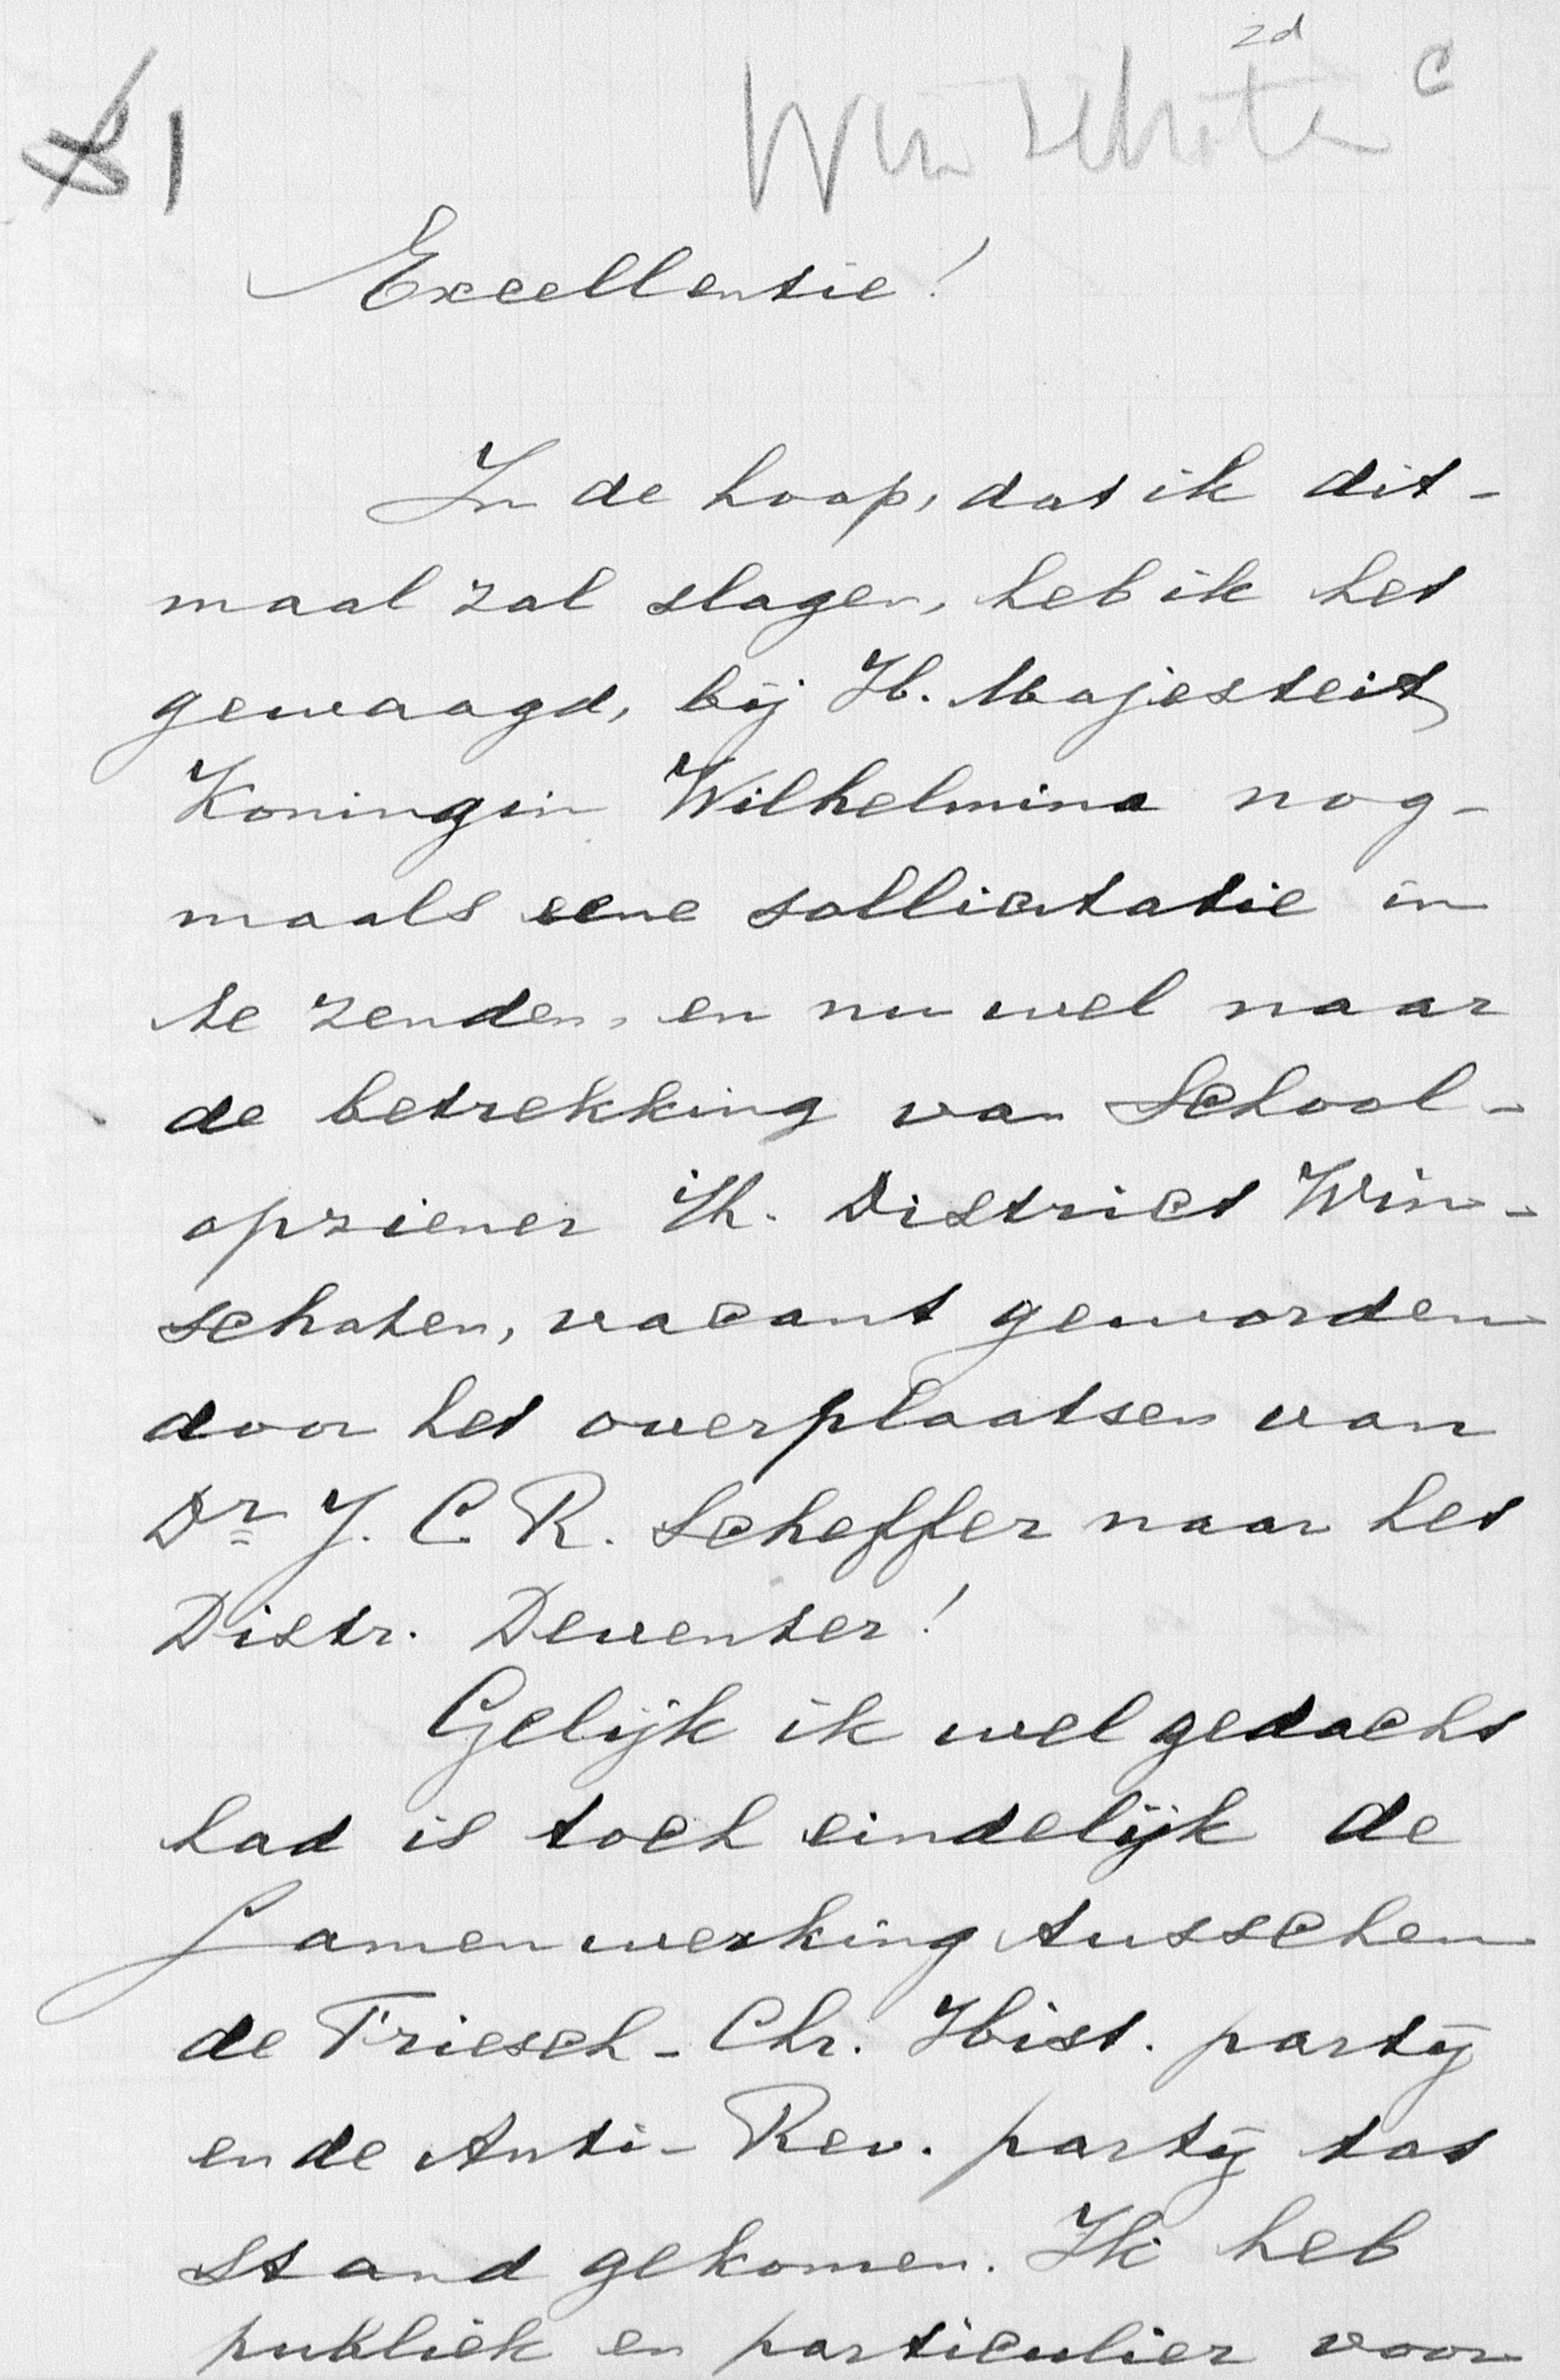 zd
Winschoten C
1
Excellentie!
In de hoop, dat ik dit-
maal zal slagen, heb ik het
gewaagd, bij H. Majesteit
Koningin Wilhelmina nog-
maals eene sollicitatie in
te zenden, en nu wel naar
de betrekking van School-
opziener ih. District Win-
schoten, vacant geworden
door het overplaatsen van
Dr J. C. R. Scheffer naar het
Distr. Deventer!
Gelijk ik wel gedacht
had is toch eindelijk de
Samenwerking tusschen
de Friesch-Chr. Hist. partij
en de Anti-Rev. partij tot
stand gekomen. Ik heb
publiek en particulier voor